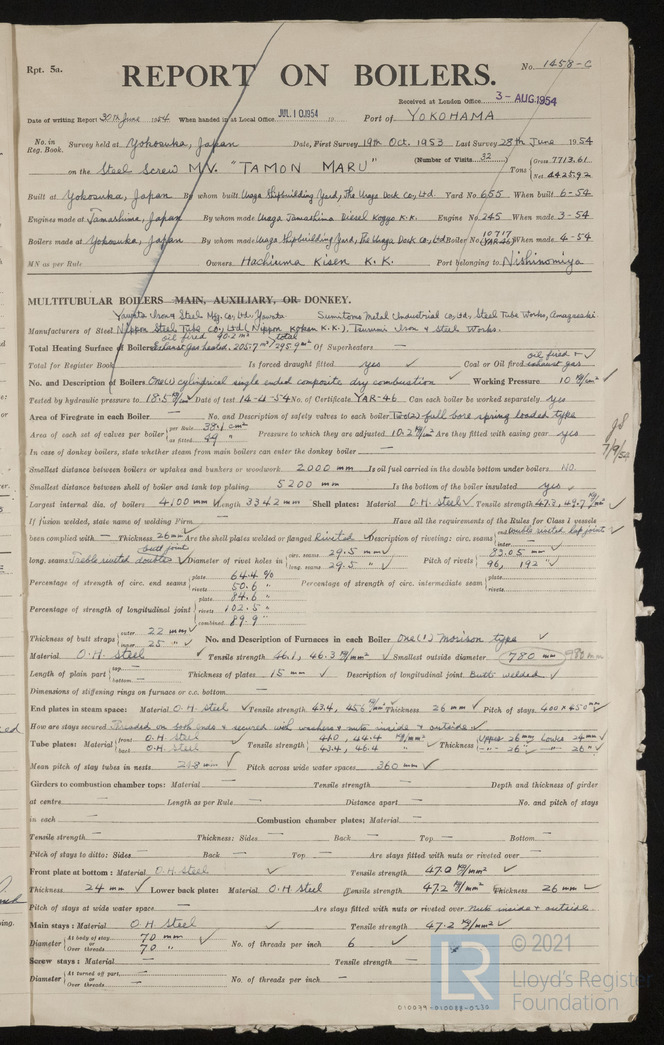 Rpt. 5a.
No. 1458-C
REPORT ON BOILERS.
Received at London Office 3- AUG 1954
Date of writing Report 30th June 1954 When handed in at Local Office JUL 10 1954 19 Port of YOKOHAMA
No. in Reg. Book. Survey held at Yokosuka, Japan Date, First Survey 19th Oct. 1953 Last Survey 28th June 1954
(Number of Visits 32)
on the Steel Screw M.V. "TAMON MARU" Tons Gross 7713.61 Net 4425.92
Built at Yokosuka, Japan By whom built Uraga Shipbuilding Yard, The Uraga Dock Co., Ltd. Yard No. 655 When built 6-54
Engines made at Tamashima, Japan By whom made Uraga Tamashima Diesel Kogyo K.K. Engine No. 245 When made 3-54
Boilers made at Yokosuka, Japan By whom made Uraga Shipbuilding Yard, The Uraga Dock Co., Ltd Boiler No. 10717 (YAR-46) When made 4-54
MN as per Rule Owners Hachiuma Kisen K. K. Port belonging to Nishinomiya
MULTITUBULAR BOILERS MAIN, AUXILIARY, OR DONKEY.
Yawata Iron & Steel Mfg. Co, Ltd, Yawata Sumitomo Metal Industrial Co, Ltd, Steel Tube Works, Amagasaki
Manufacturers of Steel Nippon Steel Tube Co., Ltd (Nippon Kokan K.K.). Tsurumi Iron & Steel Works.
oil fired 90.2 m² total
Total Heating Surface of Boilers Exhaust gas heated. 205.7 m² / 295.9 m² Of Superheaters —
Total for Register Book Is forced draught fitted yes Coal or Oil fired oil fired & exhaust gas
No. and Description of Boilers One(1) cylindrical single ended composite dry combustion Working Pressure 10 kg/cm²
Tested by hydraulic pressure to 18.5 kg/cm² Date of test 14-4-54 No. of Certificate YAR-46 Can each boiler be worked separately yes
Area of Firegrate in each Boiler — No. and Description of safety valves to each boiler Two(2) full bore spring loaded type
Area of each set of valves per boiler per Rule 38.1 cm² as fitted 49 " Pressure to which they are adjusted 10.2 kg/cm² Are they fitted with easing gear yes
In case of donkey boilers, state whether steam from main boilers can enter the donkey boiler —
Smallest distance between boilers or uptakes and bunkers or woodwork 2000 mm Is oil fuel carried in the double bottom under boilers NO.
Smallest distance between shell of boiler and tank top plating 5200 mm Is the bottom of the boiler insulated yes
Largest internal dia. of boilers 4100 mm Length 3342 mm Shell plates: Material O.H. steel Tensile strength 47.3, 49.7 kg/mm²
If fusion welded, state name of welding Firm — Have all the requirements of the Rules for Class I vessels
been complied with — Thickness 26 mm Are the shell plates welded or flanged Riveted Description of riveting: circ. seams end double riveted lap joint inter. —
long. seams Treble riveted double butt joint Diameter of rivet holes in circ. seams 29.5 mm long. seams 29.5 " Pitch of rivets 83.05 mm 96, 192 "
Percentage of strength of circ. end seams plate 64.4 % rivets 50.6 " Percentage of strength of circ. intermediate seam plate rivets
Percentage of strength of longitudinal joint plate 84.6 " rivets 102.5 " combined 89.9 "
Thickness of butt straps outer 22 mm inner 25 " No. and Description of Furnaces in each Boiler One(1) Morison type
Material O.H. Steel Tensile strength 46.1, 46.3 kg/mm² Smallest outside diameter 780 mm 980 mm
Length of plain part top — bottom — Thickness of plates 15 mm Description of longitudinal joint Butt welded
Dimensions of stiffening rings on furnace or c.c. bottom —
End plates in steam space: Material O.H. steel Tensile strength 43.4, 45.6 kg/mm² Thickness 26 mm Pitch of stays 400 x 450 mm
How are stays secured Threaded on both ends & secured with washers & nuts inside & outside
Tube plates: Material front O.H. steel back O.H. steel Tensile strength 44.0, 44.4 kg/mm² 43.4, 46.4 " Thickness Upper 26 mm Lower 24 mm — " — 26 " — " — 26 "
Mean pitch of stay tubes in nests 218 mm Pitch across wide water spaces 360 mm
Girders to combustion chamber tops: Material — Tensile strength — Depth and thickness of girder
at centre — Length as per Rule — Distance apart — No. and pitch of stays
in each — Combustion chamber plates: Material —
Tensile strength — Thickness: Sides — Back — Top — Bottom —
Pitch of stays to ditto: Sides — Back — Top — Are stays fitted with nuts or riveted over —
Front plate at bottom: Material O.H. Steel Tensile strength 47.0 kg/mm²
Thickness 24 mm Lower back plate: Material O.H Steel Tensile strength 47.2 kg/mm² Thickness 26 mm
Pitch of stays at wide water space — Are stays fitted with nuts or riveted over Nuts inside & outside
Main stays: Material O.H. Steel Tensile strength 47.2 kg/mm²
Diameter At body of stay 70 mm or Over threads 70 " No. of threads per inch 6
Screw stays: Material — Tensile strength —
Diameter At turned off part — or Over threads — No. of threads per inch —
7/9/54
© 2021
LR
Lloyd's Register
Foundation
010099-010088-0230